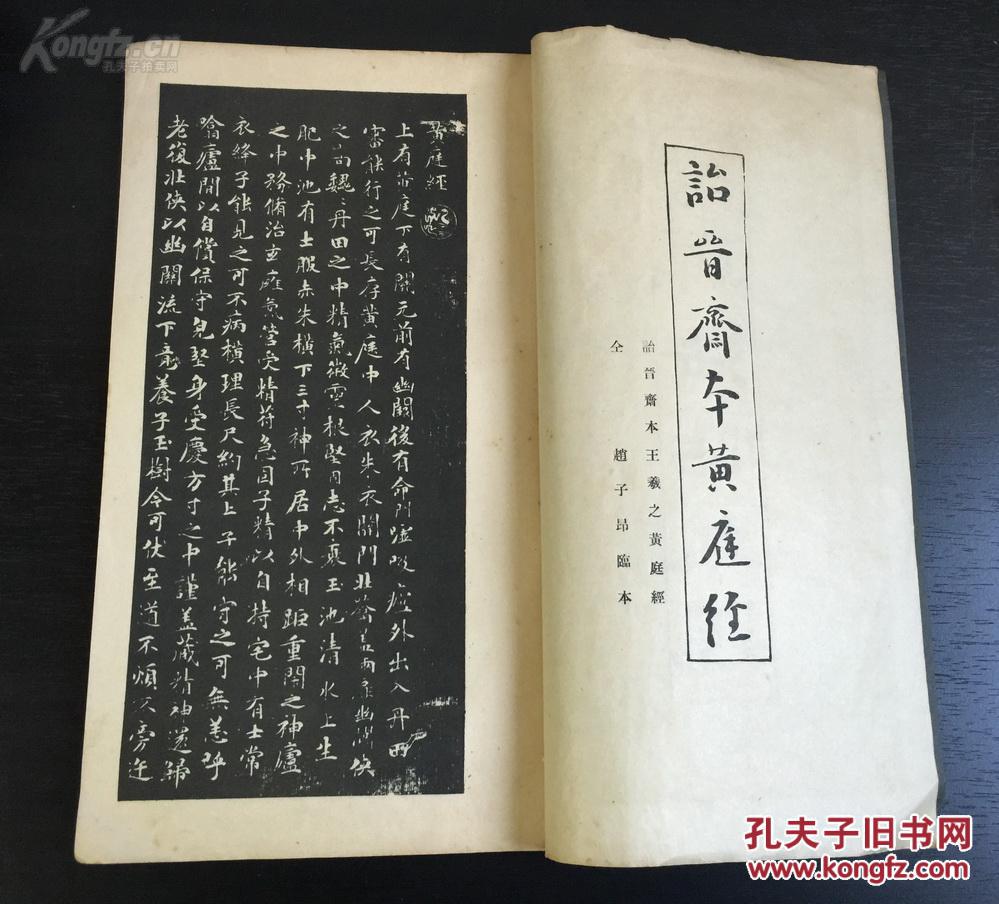 詒晉齋本黃庭經
詒晉齋本王羲之黃庭經
趙子昂臨本
全
黃庭經
上有黃庭下有關元前有幽闕後有命門噓吸廬外出入丹田
審能行之可長存黃庭中人衣朱衣關門壯蘥蓋兩扉幽闕俠
之高魏魏丹田之中精氣微玉池清水上生
肥中池有士服赤朱橫下三寸神所居中外相距重閉之神廬
之中務脩治玄廱氣管受精符急固子精以自持宅中有士常
衣絳子能見之可不病橫理長尺約其上子能守之可無恙呼
噏廬間以自償保守完堅身受慶方寸之中謹蓋藏精神還歸
老復壯俠以幽關流下竟養子玉樹令可伏至道不煩不旁迕
Kongfz.cn
孔夫子拍卖网
孔夫子旧书网
www.kongfz.com